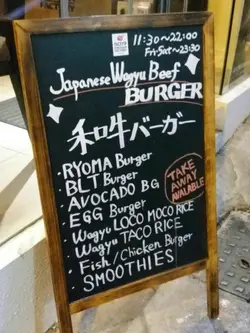 11:30~22:00
Fri·Sat~23:30
Japanese Wagyu Beef
BURGER
和牛バーガー
·RYOMA Burger
·BLT Burger
·AVOCADO B.G
·EGG Burger
·Wagyu LOCO MOCO RICE
·Wagyu TACO RICE
·Fish/Chicken Burger
·SMOOTHIES
TAKE
AWAY
AVALABLE